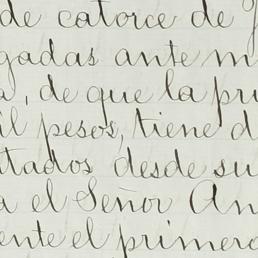 de catorce de
gadas ante m
a, de que la pri
il pesos, tiene d
tados desde su
a el Señor An
ente el primero